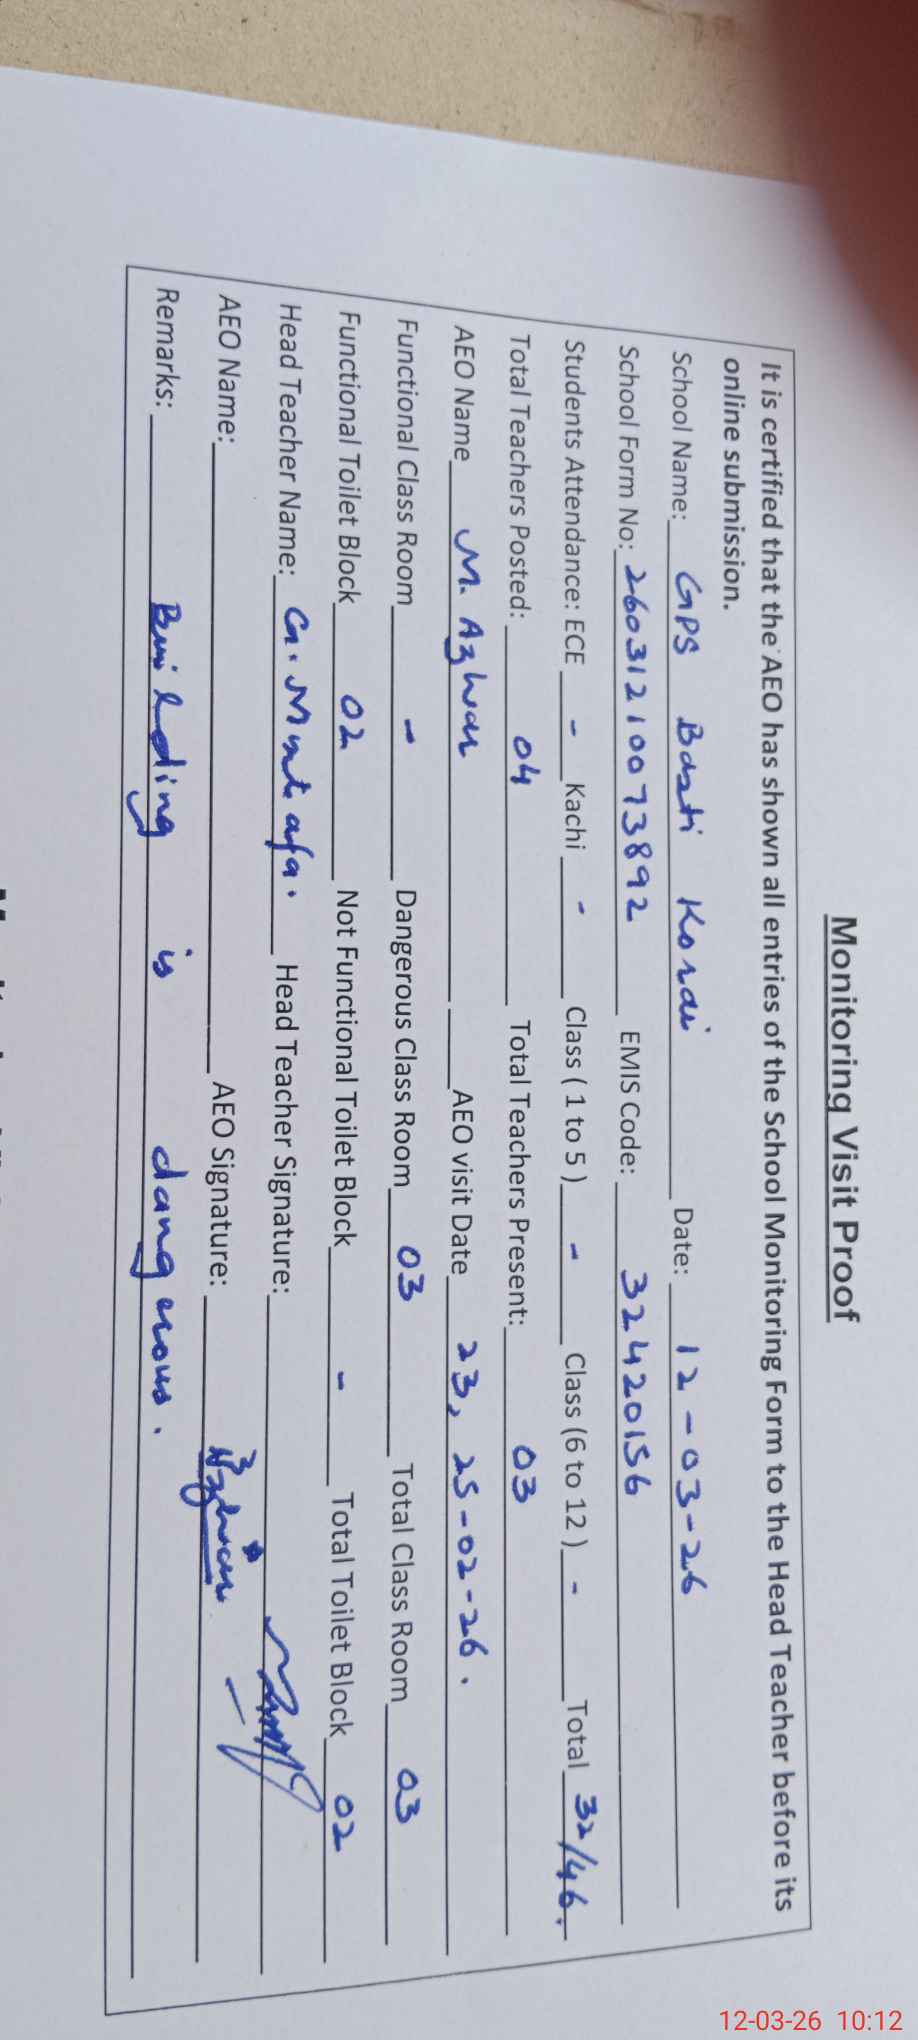 Monitoring Visit Proof
It is certified that the AEO has shown all entries of the School Monitoring Form to the Head Teacher before its
online submission.
School Name: GPS Basti Korai Date: 12-03-26
School Form No: 26031210073892 EMIS Code: 32420156
Students Attendance: ECE - Kachi - Class ( 1 to 5 ) - Class (6 to 12 ) - Total 32/46.
Total Teachers Posted: 04 Total Teachers Present: 03
AEO Name M. Azhar AEO visit Date 23, 25-02-26.
Functional Class Room - Dangerous Class Room 03 Total Class Room 03
Functional Toilet Block 02 Not Functional Toilet Block - Total Toilet Block 02
Head Teacher Name: G. Mustafa. Head Teacher Signature:
AEO Name: AEO Signature:
Remarks: Building is dangerous.
12-03-26 10:12